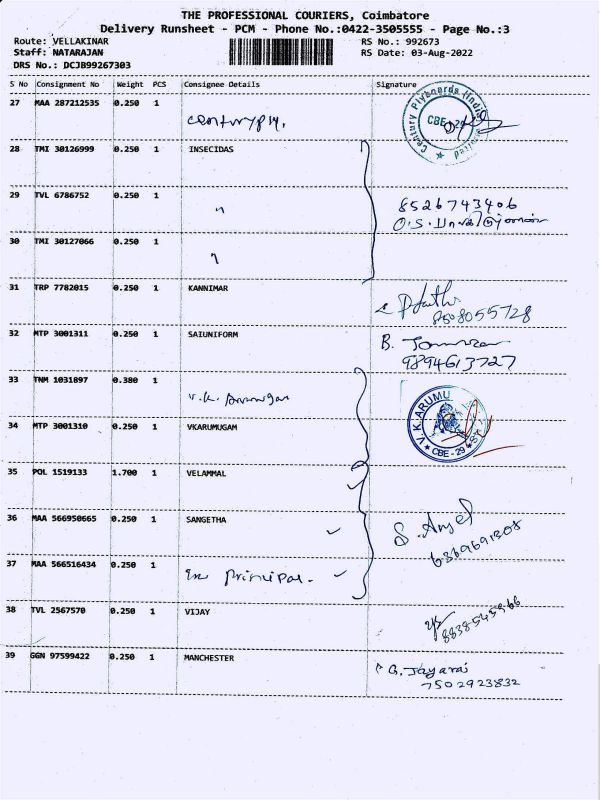 THE PROFESSIONAL COURIERS, Coimbatore
Delivery Runsheet - PCM - Phone No.:0422-3505555 - Page No.:3
Route: VELLAKINAR RS No.: 992673
Staff: NATARAJAN RS Date: 03-Aug-2022
DRS No.: DCJB99267303
S No Consignment No Weight PCS Consignee Details Signature
27 MAA 287212535 0.250 1 centuryply.
Century Plyboards (India) CBE - 29
28 TMI 30126999 0.250 1 INSECIDAS
29 TVL 6786752 0.250 1 " 8526743406
30 TMI 30127066 0.250 1 "
31 TRP 7782015 0.250 1 KANNIMAR
8508055728
32 MTP 3001311 0.250 1 SAIUNIFORM B.
9894613727
33 TNM 1031897 0.380 1 V.K. Arumugam
34 MTP 3001310 0.250 1 VKARUMUGAM V.K.ARUMU
CBE - 29
35 POL 1519133 1.700 1 VELAMMAL
36 MAA 566950665 0.250 1 SANGETHA
37 MAA 566516434 0.250 1 Principal.
38 TVL 2567570 0.250 1 VIJAY
39 GGN 97599422 0.250 1 MANCHESTER G. Jayaraj
7502923832